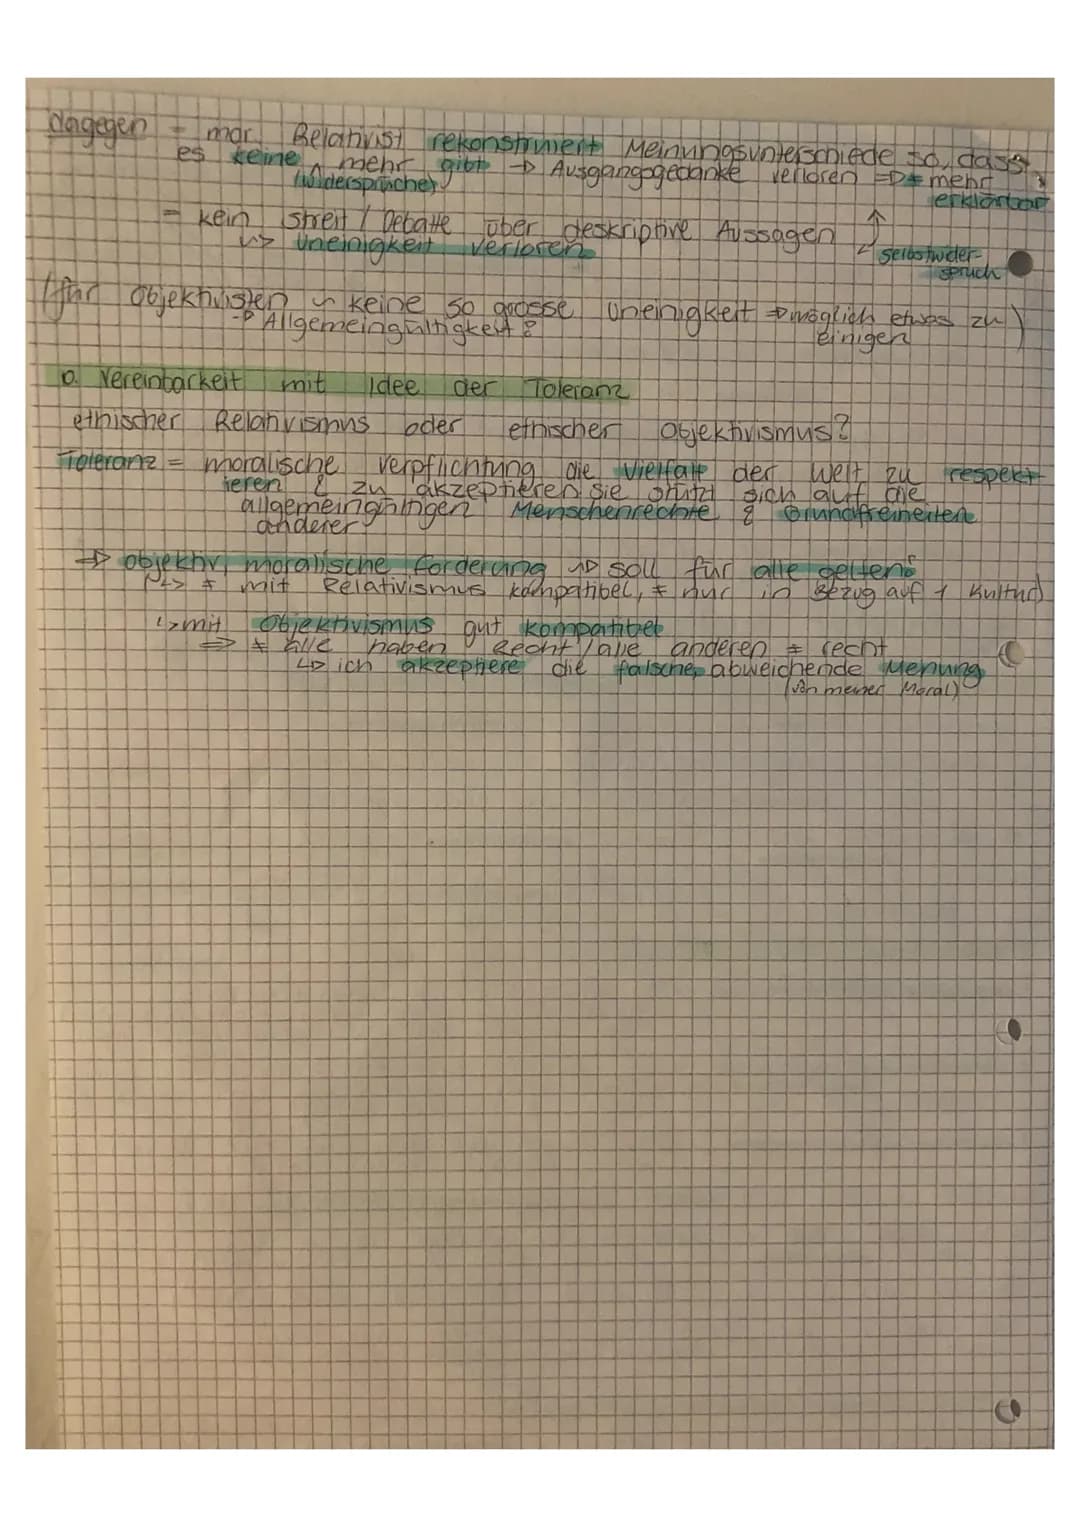 dagegen - mor. Relativist rekonstruiert Meinungsunterschiede so, dass
es keine mehr gibt → Ausgangsgedanke verloren => ≠ mehr
(Widersprüche) erklärbar
- kein Streit / Debatte über deskriptive Aussagen
↳ Uneinigkeit verloren
Selbstwider-
spruch
(für Objektivisten ~ keine so grosse Uneinigkeit → möglich etwas zu)
→ Allgemeingültigkeit? einigen
o. Vereinbarkeit mit Idee der Toleranz
ethischer Relativismus oder ethischer Objektivismus?
Toleranz = moralische Verpflichtung die Vielfalt der Welt zu respekt-
ieren & zu akzeptieren sie stützt sich auf die
allgemeingültigen Menschenrechte & Grundfreiheiten
anderer
⇒ objektiv moralische Forderung → soll für alle gelten
↳ ≠ mit Relativismus kompatibel, ≠ nur in Bezug auf 1 Kultur)
↳ mit Objektivismus gut kompatibel
⇒ ≠ alle haben Recht / alle anderen ≠ recht
↳ ich akzeptiere die falsche, abweichende Meinung
(von meiner Moral)